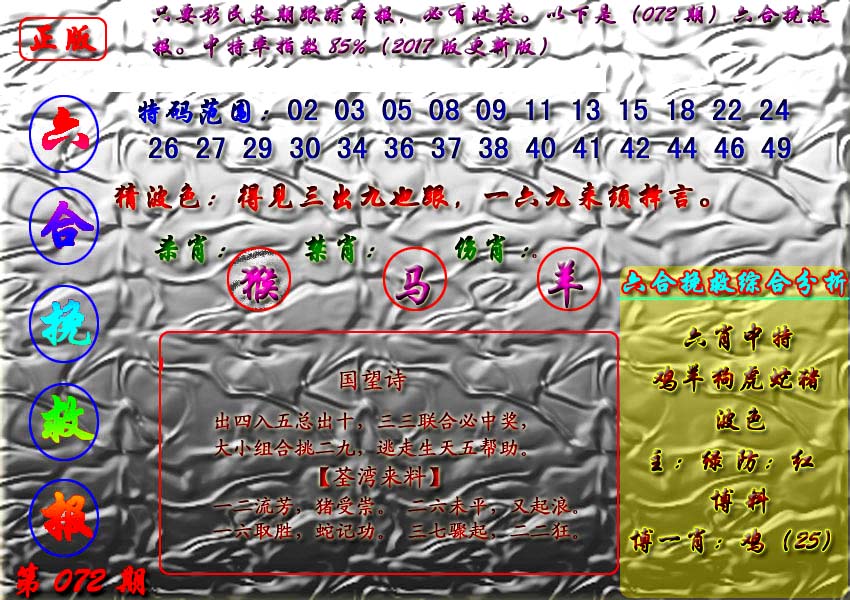 正版
只要彩民长期跟踪本报，必有收获。以下是（072期）六合挽救
报。中特率指数85%（2017版更新版）
六
合
挽
救
报
第072期
特码范围：02 03 05 08 09 11 13 15 18 22 24
26 27 29 30 34 36 37 38 40 41 42 44 46 49
猜波色：得见三出九也跟，一六九来须择言。
杀肖：猴 禁肖：马 伤肖：羊
国望诗
出四入五总出十，三三联合必中奖，
大小组合挑二九，逃走生天五帮助。
【荃湾来料】
一二流芳，猪受崇。 二六未平，又起浪。
一六取胜，蛇记功。 三七骤起，二二狂。
六合挽救综合分析
六肖中特
鸡羊狗虎蛇猪
波色
主：绿 防：红
博料
博一肖：鸡（25）